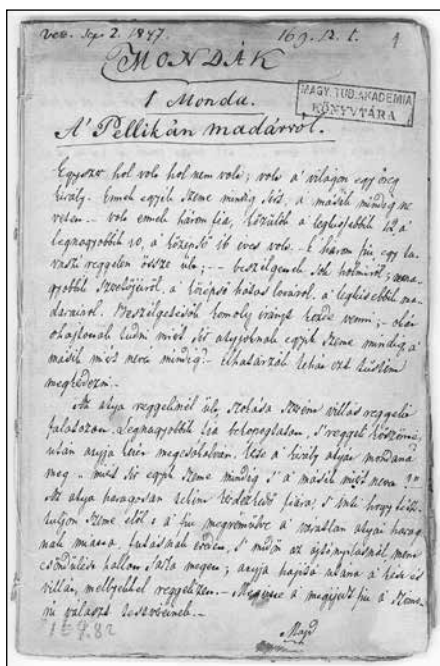 Vez. Sep. 2. 1847.
169. sz. 1.
MONDÁK
MAGY. TUD. AKADEMIA
KÖNYVTÁRA
1 Monda.
A' Pellikán madárról.
Egyszer hol volt hol nem volt; volt a' világon egy öreg
király. Ennek egyik szeme mindig sírt, a másik mindig ne
vetett. – volt ennek három fia, közülök a legkisebbik 12 a
legnagyobbik 20, a középső 16 éves volt. – E' három fiu egy ta-
vaszi reggelen össze ült; – beszélgetnek sok holmiról;
gyobbik szeretőjéről, a középső hátas lováról, a legkisebbik ma-
darairól. Beszélgetésök komoly irányt kezde venni;
ohajtanák tudni miért sír atyjoknak egyik szeme mindig, a
másik miért nevet mindig? – elhatározák tehát ezt tüstént
megkérdezni. –
Az atya reggelinél ült, szokása szerint villás reggelit
falatozott. Legnagyobbik fia bekopogtatott, 's reggeli köszöntés
után atyja kezeit megcsókolván, kéré a' király atyát mondaná
meg, miért sír egyik szeme mindig 's a másik miért nevet?
Az atya haragosan tekint kérdezkedő fiára, 's inti hogy tisz-
tuljon szeme elől; a' fiu megrémülve a váratlan atyai harag
miatt futásnak eredt, 's midőn az ajtónyitásnál
csördülést hallott hátra megett; atyja hajítá utána a' kést és
villát, mellyekkel reggelizett. – a megijedt fiu a szomo-
rú választ testvéreinek. –
169.82
Majd